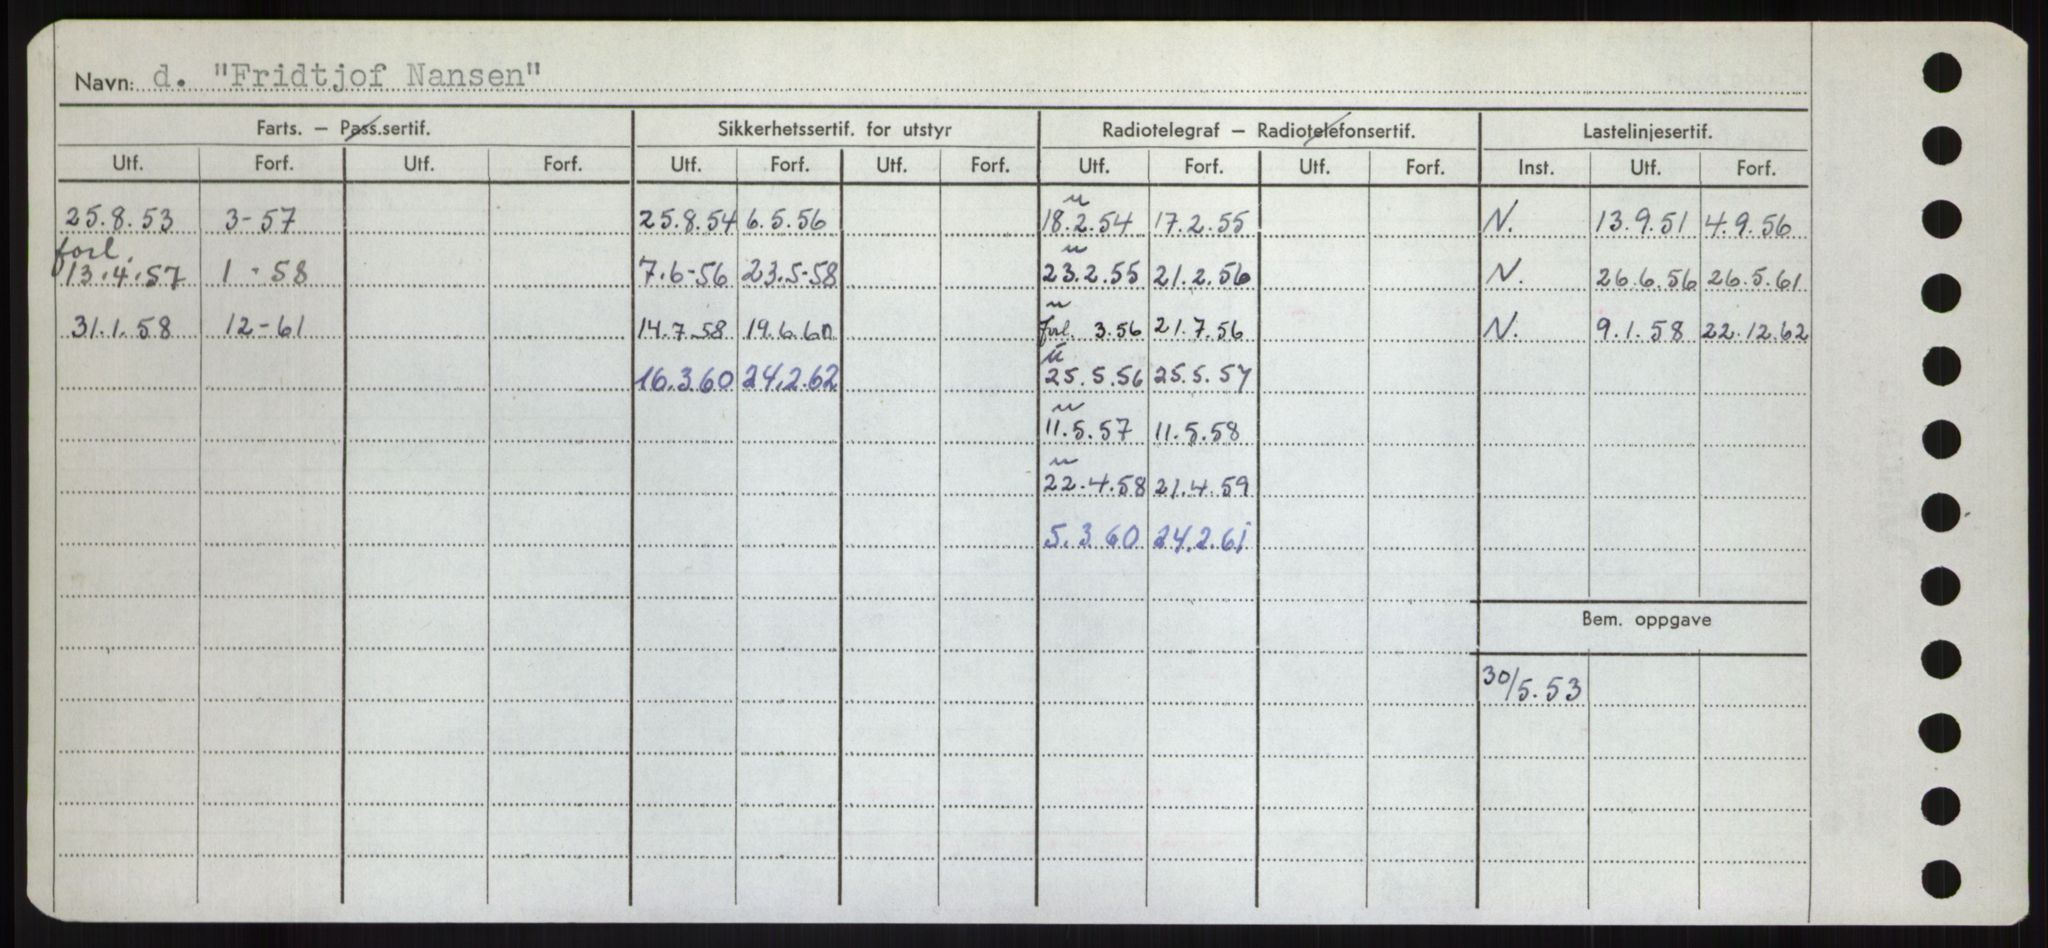 Navn: d. "Fridtjof Nansen"
Farts. – Pass.sertif. Sikkerhetssertif. for utstyr Radiotelegraf – Radiotelefonsertif. Lastelinjesertif.
Utf. Forf. Utf. Forf. Utf. Forf. Utf. Forf. Utf. Forf. Utf. Forf. Inst. Utf. Forf.
u
25.8.53 3-57 25.8.54 6.5.56 18.2.54 17.2.55 N. 13.9.51 4.9.56
forl. u
13.4.57 1-58 7.6-56 23.5-58 23.2.55 21.2.56 N. 26.6.56 26.5.61
u
31.1.58 12-61 14.7-58 19.6.60 forl. 3.56 21.7.56 N. 9.1.58 22.12.62
u
16.3.60 24.2.62 25.5.56 25.5.57
u
11.5.57 11.5.58
u
22.4.58 21.4.59
5.3.60 24.2.61
Bem. oppgave
30/5.53